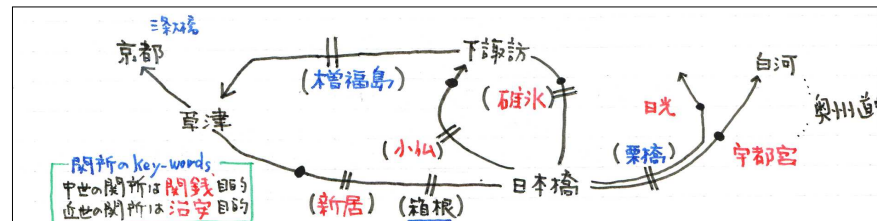 三条大橋
京都
下諏訪
白河
(木曽福島)
(碓氷)
日光
奥州道
草津
(小仏)
(栗橋)
宇都宮
関所のkey-words
中世の関所は関銭目的
近世の関所は治安目的
(新居)
(箱根)
日本橋